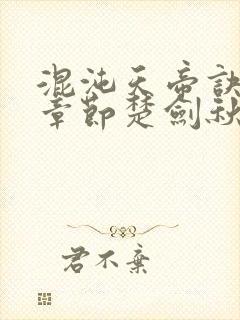 混沌天帝诀
章節楚劍秋
君不棄